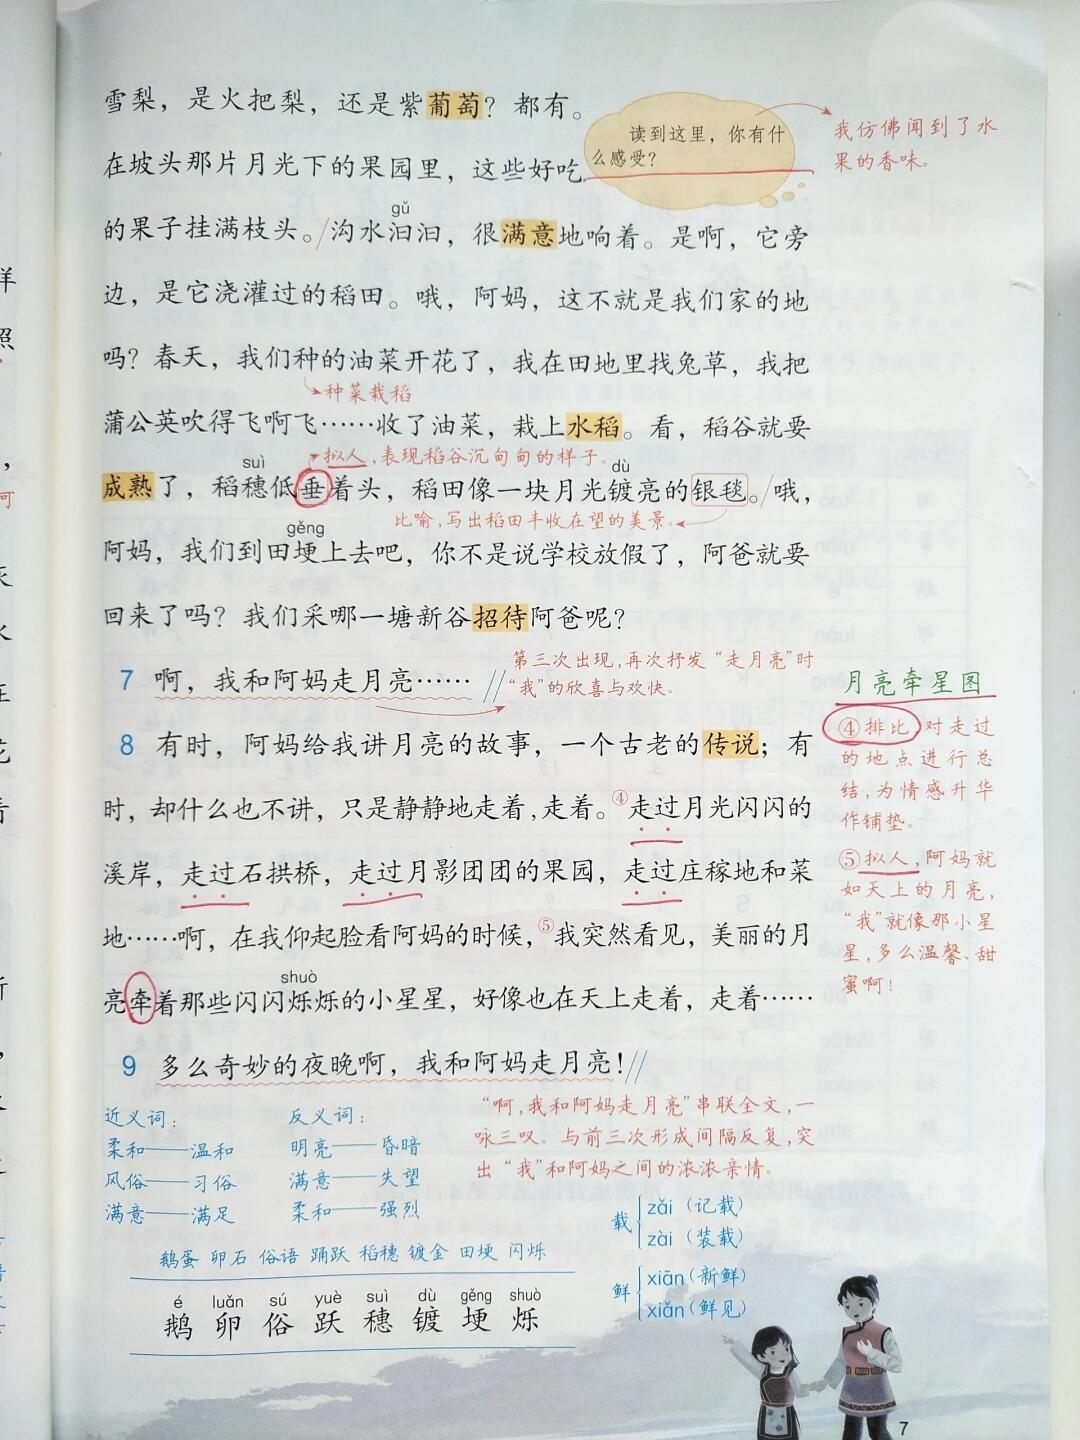 雪梨，是火把梨，还是紫葡萄？都有。
读到这里，你有什
么感受？
我仿佛闻到了水
果的香味。
在坡头那片月光下的果园里，这些好吃
gǔ
的果子挂满枝头。/沟水汩汩，很满意地响着。是啊，它旁
边，是它浇灌过的稻田。哦，阿妈，这不就是我们家的地
吗？春天，我们种的油菜开花了，我在田地里找兔草，我把
种菜栽稻
蒲公英吹得飞啊飞……收了油菜，栽上水稻。看，稻谷就要
拟人，表现稻谷沉甸甸的样子。
suì dù
成熟了，稻穗低垂着头，稻田像一块月光镀亮的银毯。/哦，
比喻，写出稻田丰收在望的美景。
gěng
阿妈，我们到田埂上去吧，你不是说学校放假了，阿爸就要
回来了吗？我们采哪一塘新谷招待阿爸呢？
第三次出现，再次抒发“走月亮”时
“我”的欣喜与欢快。
7 啊，我和阿妈走月亮……//
月亮牵星图
8 有时，阿妈给我讲月亮的故事，一个古老的传说；有
时，却什么也不讲，只是静静地走着，走着。④走过月光闪闪的
溪岸，走过石拱桥，走过月影团团的果园，走过庄稼地和菜
地……啊，在我仰起脸看阿妈的时候，⑤我突然看见，美丽的月
shuò
亮牵着那些闪闪烁烁的小星星，好像也在天上走着，走着……
④排比，对走过
的地点进行总
结，为情感升华
作铺垫。
⑤拟人，阿妈就
如天上的月亮，
“我”就像那小星
星，多么温馨、甜
蜜啊！
9 多么奇妙的夜晚啊，我和阿妈走月亮！//
“啊，我和阿妈走月亮”串联全文，一
咏三叹。与前三次形成间隔反复，突
出“我”和阿妈之间的浓浓亲情。
近义词：
柔和——温和
风俗——习俗
满意——满足
反义词：
明亮——昏暗
满意——失望
柔和——强烈
载 zǎi（记载）
zài（装载）
鲜 xiān（新鲜）
xiǎn（鲜见）
鹅蛋 卵石 俗语 踊跃 稻穗 镀金 田埂 闪烁
é luǎn sú yuè suì dù gěng shuò
鹅 卵 俗 跃 穗 镀 埂 烁
7